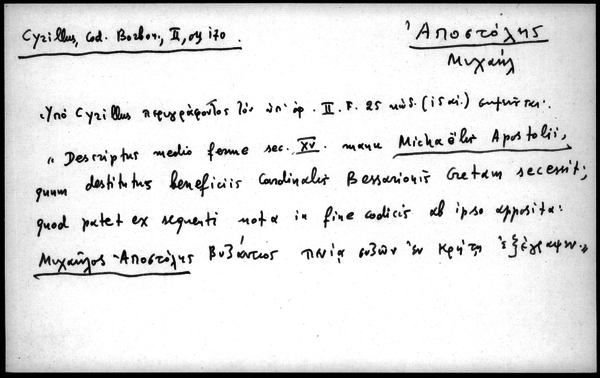 Cyrillus, Cod. Borbon., II, σελ 170.
Ἀποστόλης
Μιχαήλ
Ὑπὸ Cyrillus περιγράφοντος τὸν ὑπ' ἀρ. II. F. 25 κώδ. (ις αἰ.) σημειῦται:
"Descriptus medio ferme sec. XV. manu Michaëlis Apostolii,
quum destitutus beneficiis Cardinalis Bessarionis Cretam secessit;
quod patet ex sequenti nota in fine codicis ab ipso apposita:
Μιχαῆλος Ἀποστόλης Βυζάντιος πενίᾳ συζῶν ἐν Κρήτῃ ἐξέγραψεν."